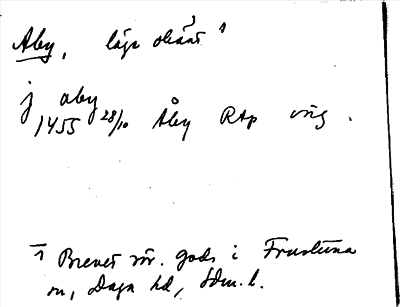 Åby, läge okänt 1
j aby
1455 28/10 Åby RAp orig.
1 Brevet rör. gods i Frustuna
sn, Daga hd, Sdm. l.